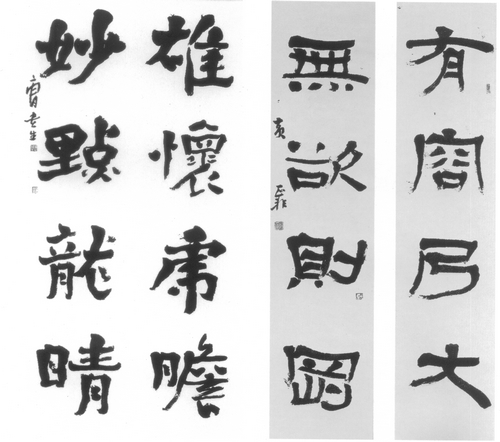 有容乃大
無欲則剛
雄懷虎膽
妙點龍睛